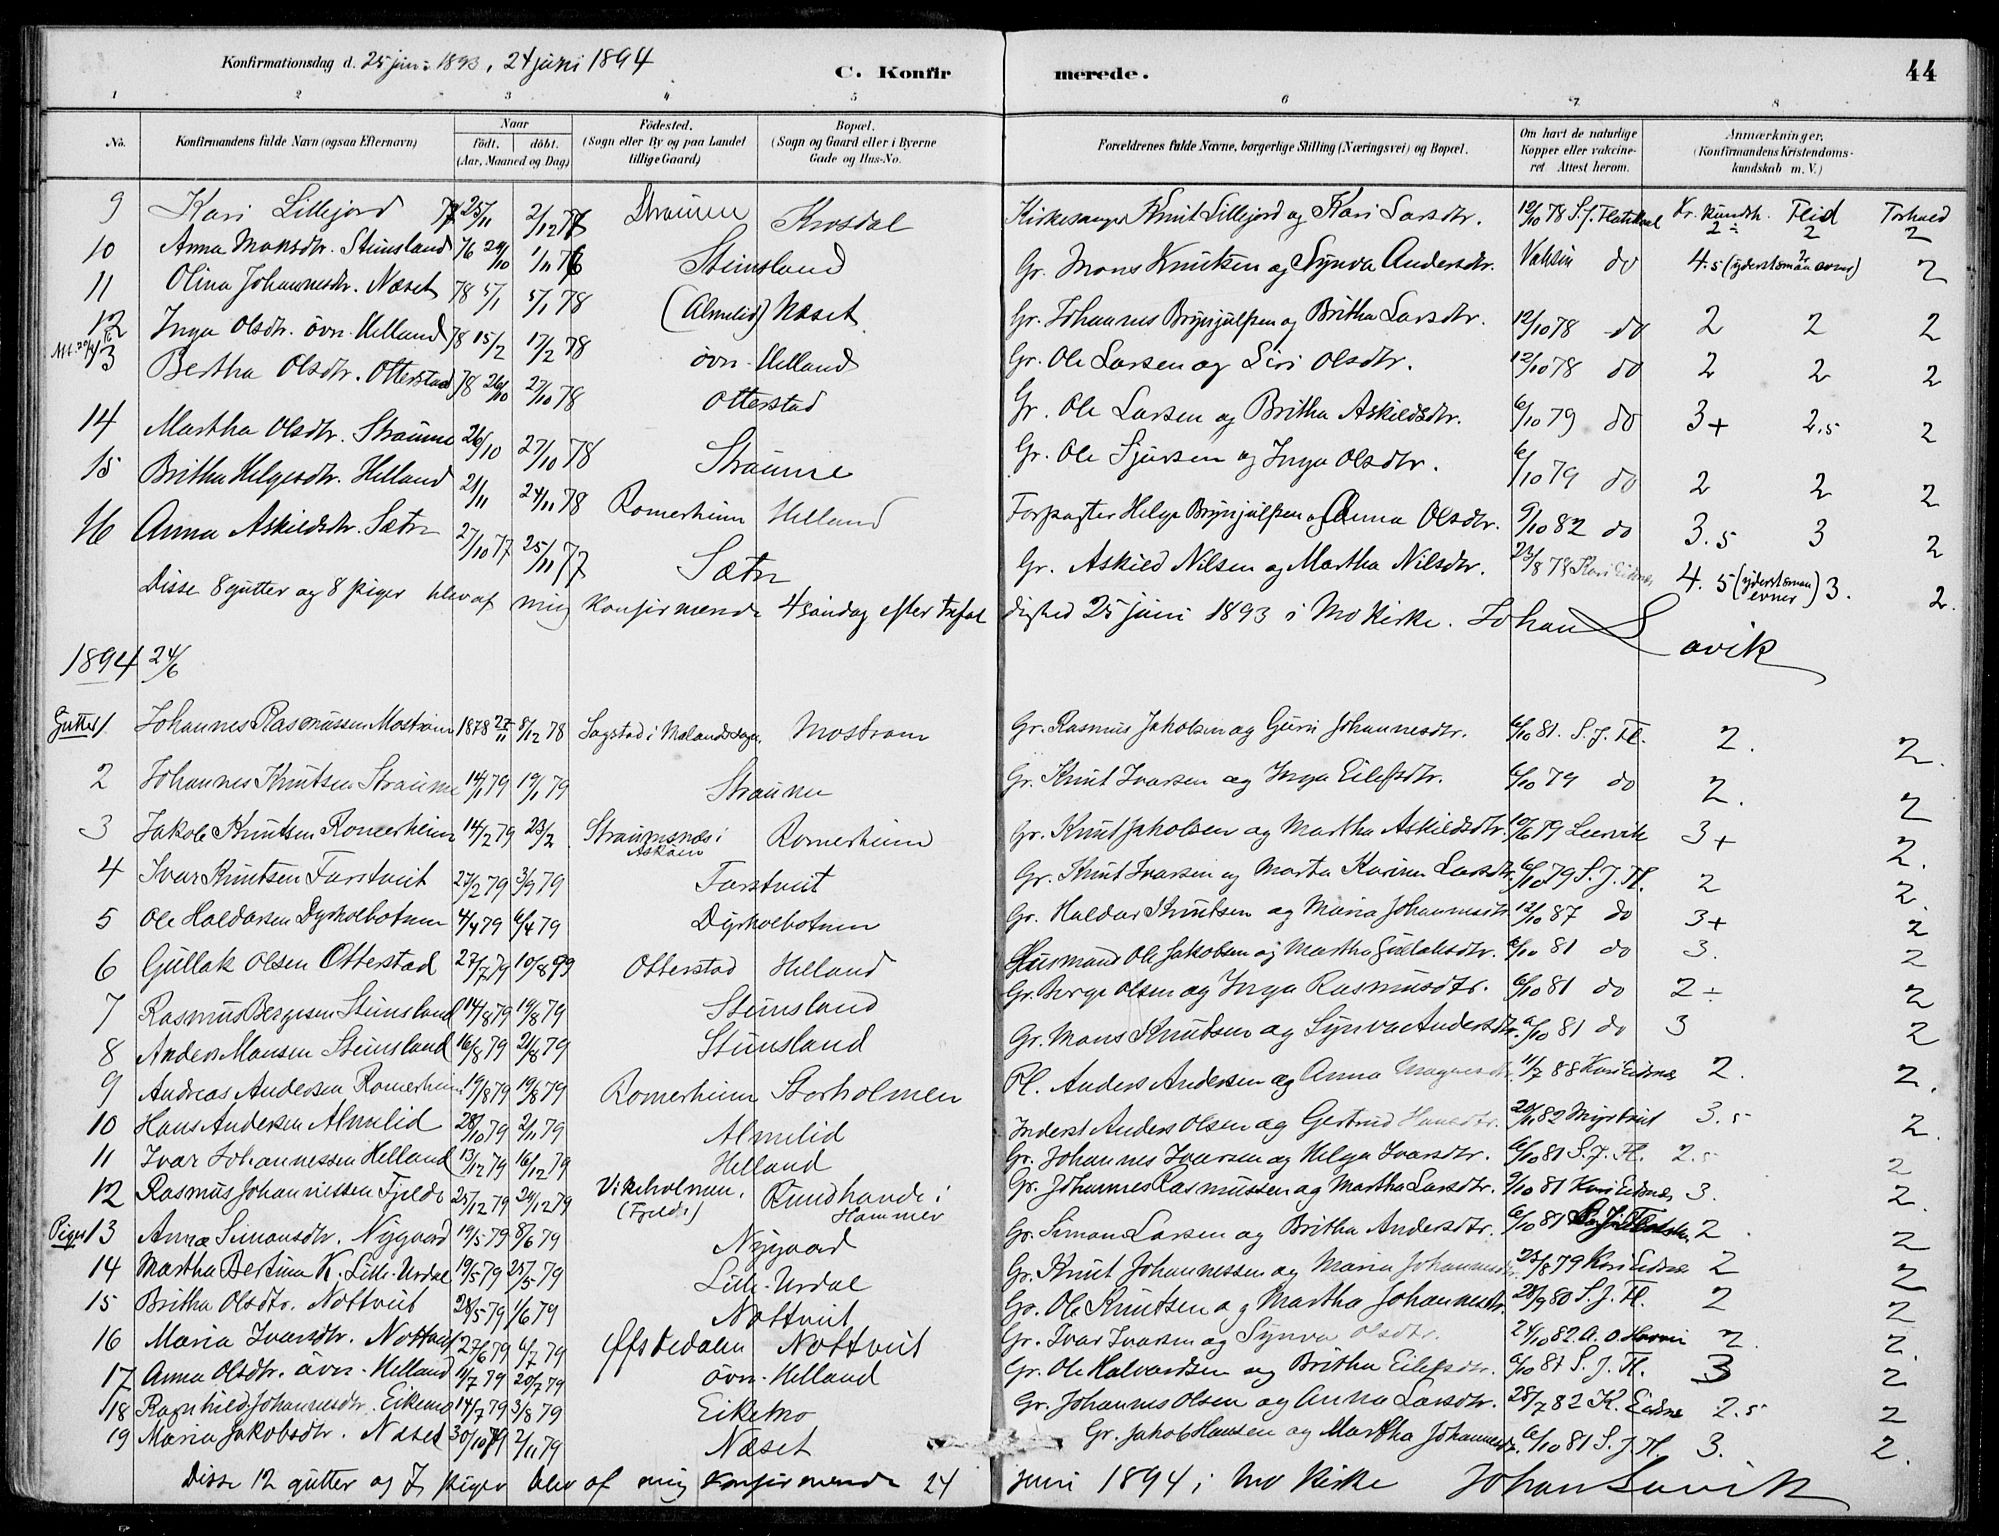 Konfirmationsdag d. 25 juni 1893, 24 juni 1894
C. Konfirmerede.
44
1 2 3 4 5 6 7 8
No. Konfirmandens fulde Navn (ogsaa Efternavn) Naar födt. döbt. (Aar, Maaned og Dag) Födested. (Sogn eller By og paa Landet tillige Gaard) Bopæl. (Sogn og Gaard eller i Byerne Gade og Hus-No. Forældrenes fulde Navne, borgerlige Stilling (Næringsvei) og Bopæl. Om havt de naturlige Kopper eller vakcineret Attest herom. Anmærkninger. (Konfirmandens Kristendomskundskab m. V.)
9 Kari Lillejord 77 25/11 2/12 77 Straume Krosdal Kirkesanger Knut Lillejord og Kari Larsdtr. 12/10 78 S. J. Kr. kundsk. 2÷ Flid 2 Forhold 2
10 Anna Monsdtr. Steinsland 76 29/10 1/11 76 Steinsland Gr. Mons Knutsen og Synva Andersdtr. Vaksin do 4.5 2
11 Olina Johannesdtr. Næset 78 5/1 5/1 78 (Almelid) Næset Gr. Johannes Brynjulfsen og Britha Larsdtr. 12/10 78 do 2 2 2
12 Inga Olsdtr. övr. Helland 78 15/2 17/2 78 övr. Helland Gr. Ole Larsen og Siri Olsdtr. 12/10 78 do 2 2 2
13 Bertha Olsdtr. Otterstad 78 26/10 27/10 78 Otterstad Gr. Ole Larsen og Britha Askildsdtr. 6/10 79 do 3+ 2.5 2
14 Martha Olsdtr. Straume 26/10 27/10 78 Straume Gr. Ole Sjursen og Inga Olsdtr. 6/10 79 do 2 2 2
15 Britha Helgesdtr. Helland 21/11 24/11 78 Romerheim Helland Forpagter Helge Brynjulfsen og Anna Olsdtr. 9/10 82 do 3.5 3 2
16 Anna Askildsdtr. Sætr 27/10 77 25/11 77 Sætr Gr. Askild Nilsen og Martha Nilsdtr. 23/8 79 Kari Eidnes 4.5 (yderst sman evner) 3. 2.
Disse 8 gutter og 8 piger blev af mig konfirmerede 4 söndag efter trefoldighed 25 juni 1893 i Mo Kirke. Johan Lavik
1894 24/6
Gutter 1 Johannes Rasmussen Mostrøm 1878 27/11 8/12 78 Sagstad i Mostrøm Gr. Rasmus Jakobsen og Guri Johannesdtr. 6/10 81. S. J. Fl. 2. 2.
2 Johannes Knutsen Straume 14/1 79 19/1 79 Straume Gr. Knut Ivarsen og Inga Eilefsdtr. 6/10 79 do 2. 2
3 Jakob Knutsen Romerheim 14/2 79 23/2 Straumsnes i Askøen Romerheim Gr. Knut Jakobsen og Martha Askildsdtr. 79 Leervik 3+ 2.
4 Ivar Knutsen Farstveit 27/2 79 3/9 79 Farstveit Gr. Knut Ivarsen og Marta Karine Larsdtr. 6/10 79 S. J. Fl. 2 2.
5 Ole Haldorsen Dyrkolbotnen 4/4 79 6/4 79 Dyrkolbotnen Gr. Haldor Knutsen og Maria Johannesdtr. 12/10 87 do 3+ 2
6 Gullak Olsen Otterstad 27/7 79 10/8 99 Otterstad Helland Husmand Ole Jakobsen og Martha Gullaksdtr. 6/10 81 do 3. 2
7 Rasmus Bergesen Steinsland 14/8 79 19/8 79 Steinsland Gr. Berge Olsen og Inga Rasmusdtr. 6/10 81 do 2÷ 2
8 Anders Monsen Steinsland 16/8 79 21/8 79 Steinsland Gr. Mons Knutsen og Synva Andersdtr. 6/10 81 do 3 2
9 Andreas Andersen Romerheim 19/8 79 19/8 79 Romerheim Storholmen Pl. Anders Andersen og Anna 11/7 88 Kari Eidnes 2. 2.
10 Hans Andersen Almelid 28/10 79 2/11 79 Almelid Inderst Anders Olsen og Gertrud Hansdtr. 20/11 82 3.5 2.
11 Ivar Johannessen Helland 13/12 79 16/12 79 Helland Gr. Johannes Ivarsen og Helga Ivarsdtr. 6/10 81 S. J. Fl. 2.5 2
12 Rasmus Johannessen Fjelde 25/12 79 29/12 79 Vikeholmen. (Fjelde) Rundhaude i Hammer Gr. Johannes Rasmussen og Martha Larsdtr. 9/10 81 Kari Eidnes 3. 2.
Piger 13 Anna Simonsdtr. Nygaard 19/5 79 8/6 79 Nygaard Gr. Simon Larsen og Britha Andersdtr. 6/10 81 2. 2
14 Martha Bertina K. Lille-Urdal 19/5 79 25/5 79 Lille-Urdal Gr. Knut Johannessen og Maria Johannesdtr. 23/8 79 Kari Eidnes 2 2
15 Britha Olsdtr. Nottveit 28/5 79 1/6 79 Nottveit Gr. Ole Knutsen og Martha Johannesdtr. 28/9 80 S. J. Fl. 2 2
16 Maria Ivarsdtr. Nottveit 27/6 79 6/7 79 Øfstedalen Nottveit Gr. Ivar Ivarsen og Synva Olsdtr. 24/10 82 A. O. 2. 2.
17 Anna Olsdtr. övr. Helland 11/7 79 20/7 79 övr. Helland Gr. Ole Halvardsen og Britha Eilefsdtr. 6/10 81 S. J. Fl. 3 2
18 Ragnhild Johannesdtr. Eikemo 14/7 79 3/8 79 Eikemo Gr. Johannes Olsen og Anna Larsdtr. 28/7 82 K. Eidnes 2.5 2
19 Maria Jakobsdtr. Næset 30/10 79 2/11 79 Næset Gr. Jakob Hansen og Martha Johannesdtr. 6/10 81 S. J. Fl. 3. 2.
Disse 12 gutter og 7 piger blev af mig konfirmerede 24 juni 1894 i Mo Kirke Johan Lavik